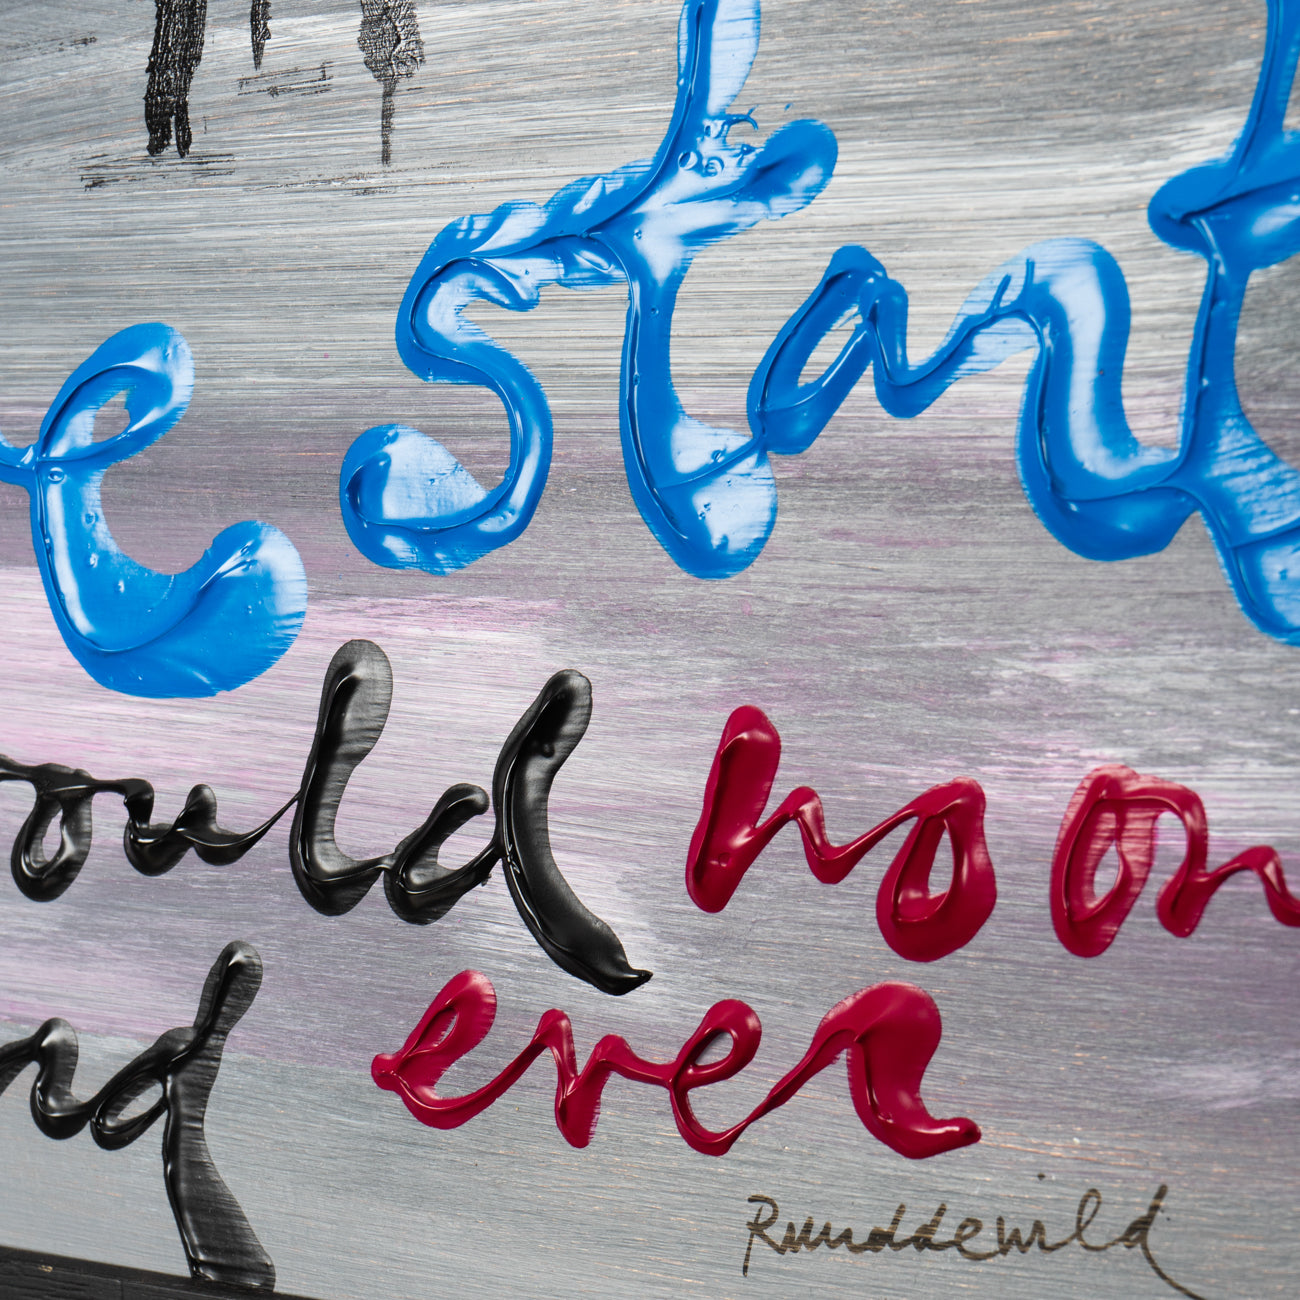 e start
ould no on
nd ever
Ruuddewild